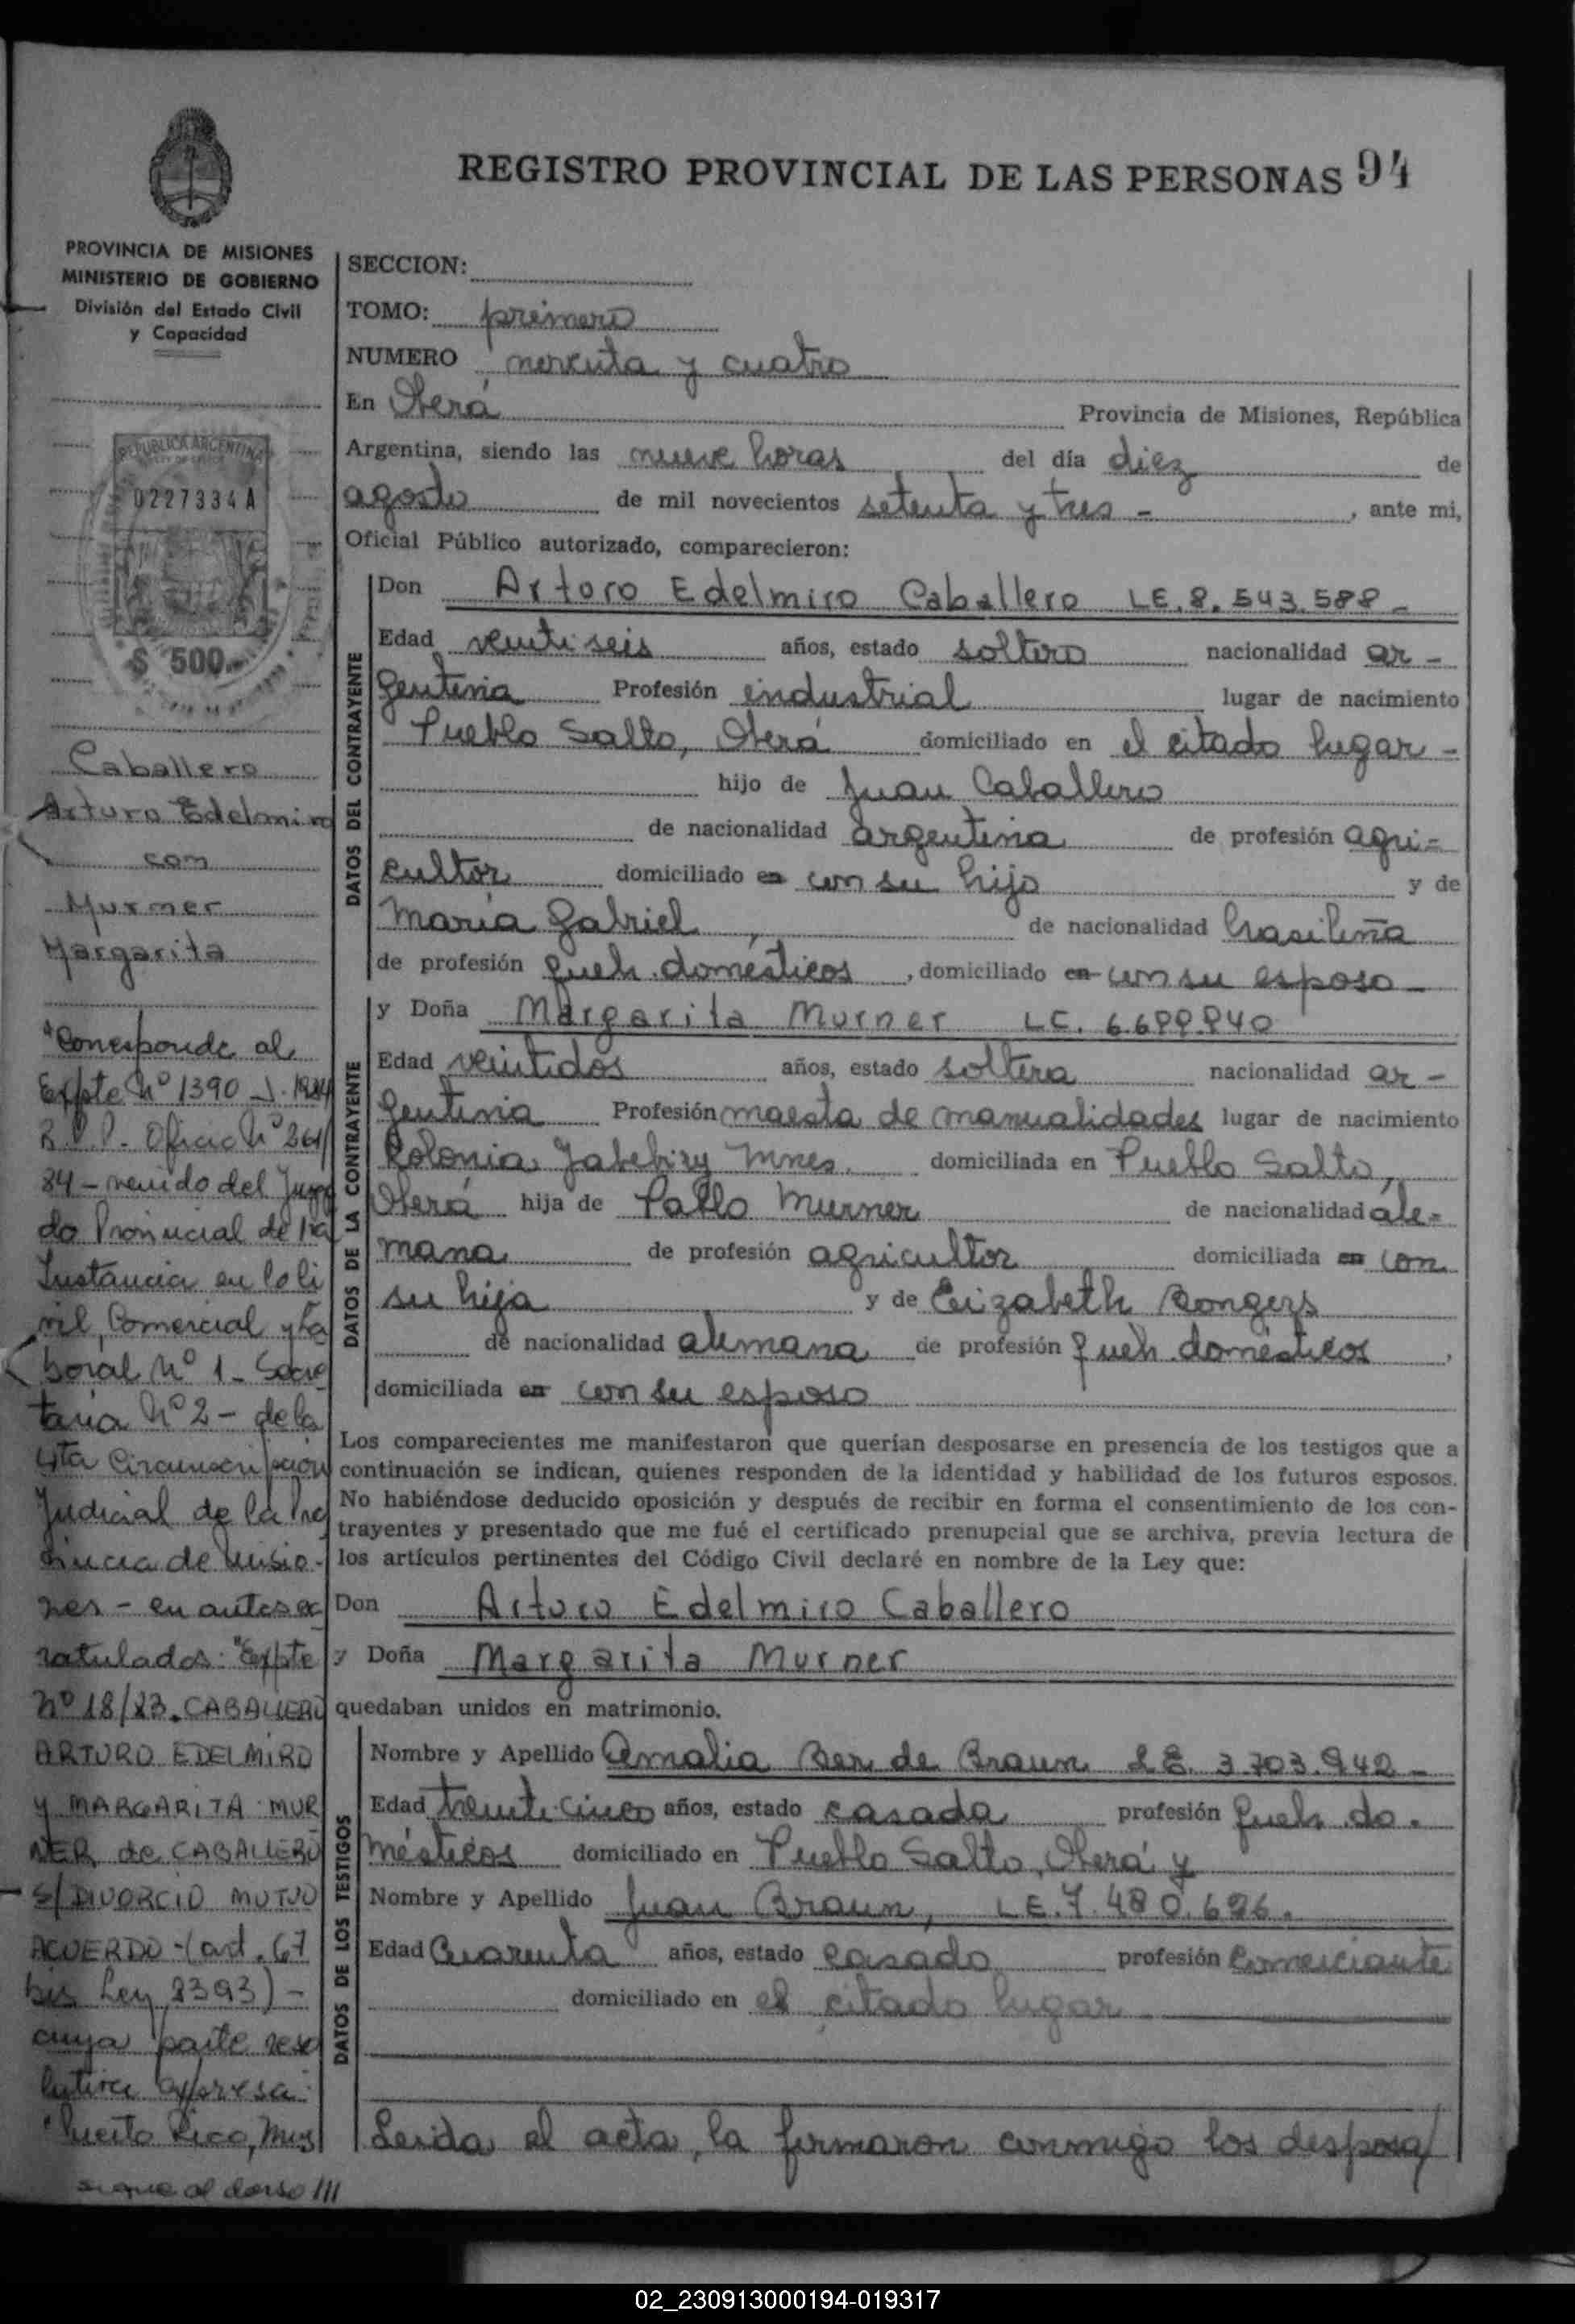 REGISTRO PROVINCIAL DE LAS PERSONAS 94
PROVINCIA DE MISIONES
MINISTERIO DE GOBIERNO
División del Estado Civil
y Capacidad
REPUBLICA ARGENTINA
0227334 A
$ 500
Caballero
Arturo Edelmiro
con
Murner
Margarita
"Corresponde al
Expte Nº 1390 J. 1984
R.P.P. Oficio Nº 261/
84 - venido del Juzga
do Provincial de 1ra
Instancia en lo Ci
vil, Comercial y La
boral Nº 1 - Secre
taria Nº 2 - de la
4ta Circunscripción
Judicial de la Pro
vincia de Misio-
nes - en autos ca
ratulados: "Expte
Nº 18/83. CABALLERO
ARTURO EDELMIRO
y MARGARITA MUR
NER de CABALLERO
S/ DIVORCIO MUTUO
ACUERDO - (art. 67
bis Ley 2393) -
cuya parte reso
lutiva expresa:
"Puerto Rico, Mnes
sigue al dorso ///
SECCION:
TOMO: primero
NUMERO noventa y cuatro
En Oberá Provincia de Misiones, República
Argentina, siendo las nueve horas del día diez de
agosto de mil novecientos setenta y tres - , ante mi,
Oficial Público autorizado, comparecieron:
DATOS DEL CONTRAYENTE
Don Arturo Edelmiro Caballero LE. 8.543.588 -
Edad veintiseis años, estado soltero nacionalidad ar -
gentina Profesión industrial lugar de nacimiento
Pueblo Salto, Oberá domiciliado en el citado lugar -
hijo de Juan Caballero
de nacionalidad argentina de profesión agri-
cultor domiciliado en con su hijo y de
María Gabriel, de nacionalidad brasileña
de profesión queh. domésticos, domiciliado en con su esposo -
DATOS DE LA CONTRAYENTE
y Doña Margarita Murner LC. 6.699.940
Edad veintidos años, estado soltera nacionalidad ar -
gentina Profesión maesta de manualidades lugar de nacimiento
Colonia Yabebiry Mnes. domiciliada en Pueblo Salto,
Oberá hija de Pablo Murner de nacionalidad ale-
mana de profesión agricultor domiciliada en con
su hija y de Eizabeth Bongers
de nacionalidad alemana de profesión queh. domésticos,
domiciliada en con su esposo
Los comparecientes me manifestaron que querían desposarse en presencia de los testigos que a
continuación se indican, quienes responden de la identidad y habilidad de los futuros esposos.
No habiéndose deducido oposición y después de recibir en forma el consentimiento de los con-
trayentes y presentado que me fué el certificado prenupcial que se archiva, previa lectura de
los artículos pertinentes del Código Civil declaré en nombre de la Ley que:
Don Arturo Edelmiro Caballero
y Doña Margarita Murner
quedaban unidos en matrimonio.
DATOS DE LOS TESTIGOS
Nombre y Apellido Amalia Ber de Braun L.E. 3.703.942 -
Edad treinta cinco años, estado casada profesión queh. do.
mésticos domiciliado en Pueblo Salto, Oberá y
Nombre y Apellido Juan Braun, LE. 7.480.626.
Edad Cuarenta años, estado casado profesión comerciante
domiciliado en el citado lugar
Leida el acta, la firmaron conmigo los desposa/
02_230913000194-019317